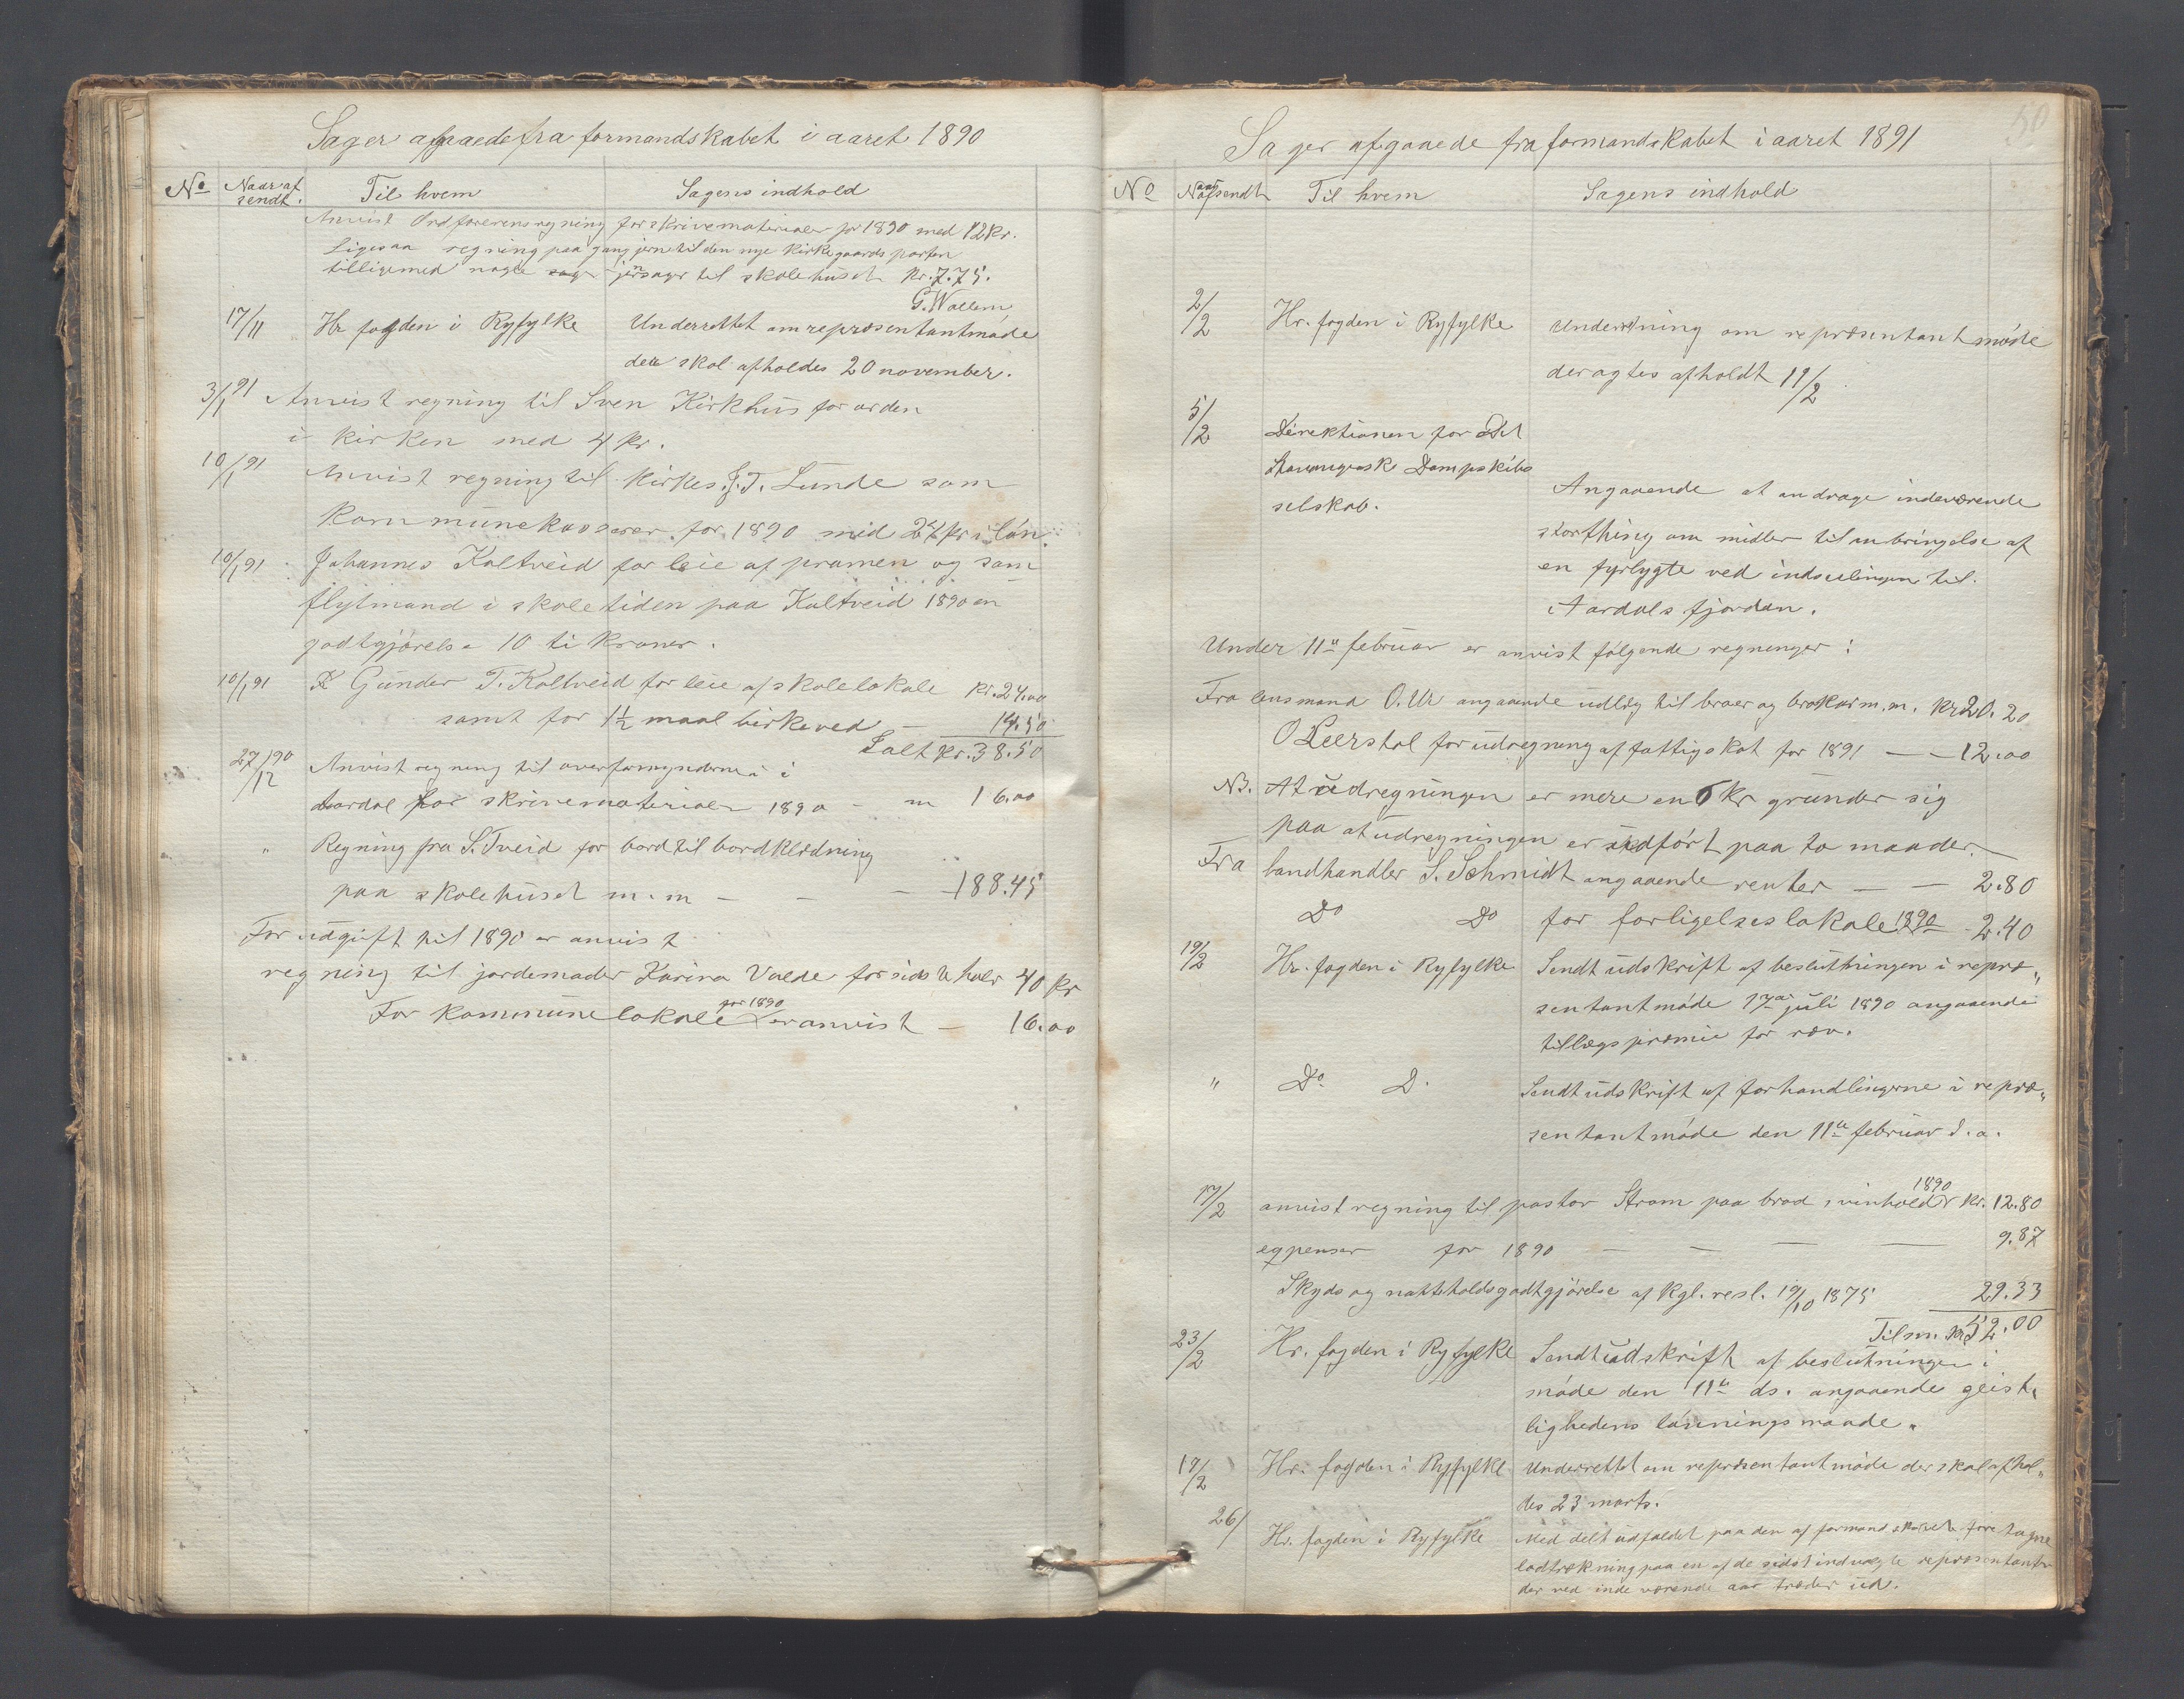 Sager afgaaede fra formandskabet i aaret 1890
No Naar af sendt. Til hvem Sagens indhold
Anvist Ordførerens regning for skrivematerialer for 1890 med 12 kr.
Ligesaa regning paa gangjern til den nye kirkegaards porten
tilligemed nogle jernsager til skolehuset kr. 7.75.
G. Wallem
17/11 Hr fogden i Ryfylke Underrettet om repræsentantmøde
der skal afholdes 20 november.
3/1 91 Anvist regning til Sven Kirkhus for orden
i kirken med 4 kr.
10/1 91 Anvist regning til kirkes. J. T. Lunde som
Kommunekasserer for 1890 med 24 kr i løn.
10/1 91 Johannes Kaltveid for leie af pramen og som
flytmand i skoletiden paa Kaltveid 1890 en
godtgjørelse 10 ti kroner.
10/1 91 Gunder T. Kaltveid for leie af skolelokale kr. 24.00
samt for 1½ maal birkeved — 14.50
Ialt kr. 38.50
27/12 90 Anvist regning til overformynderne i
Aardal for skrivematerialer 1890 - " 16.00
" Regning fra S. Tveid for bord til bordklædning
paa skolehuset m. m - - - 188.45
For udgift til 1890 er anvist
regning til jordemoder Karina Valde for sidste halv 40 kr
For kommunelokale for 1890 er anvist — 16.00
50
Sager afgaaede fra formandskabet i aaret 1891
No Naar afsendt Til hvem Sagens indhold
2/2 Hr. fogden i Ryfylke Underretning om repræsentantmøde
der agtes afholdt 11/2
5/2 Direktionen for Det
Stavangerske Dampskibs
selskab.
Angaaende at andrage indeværende
storthing om midler til anbringelse af
en fyrlygte ved indseilingen til
Aardals fjorden.
Under 11te februar er anvist følgende regninger:
Fra lensmand O. Ur angaaende udlæg til broer og brokar m.m. kr 20.20
O Leerstol for udregning af fattigskat for 1891 — — 12.00
NB. At udregningen er mere en 6 kr grunder sig
paa at udregningen er udført paa to maader.
Fra landhandler S. Schmidt angaaende renter — — 2.80
Do Do for forligelseslokale 1890 - 2.40
19/2 Hr. fogden i Ryfylke Sendt udskrift af beslutningen i repræ„
sentantmøde 17de juli 1890 angaaende
tillægspræmie for ræv.
" Do D. Sendt udskrift af forhandlingerne i repræ„
sentantmøde den 11te februar d. a.
17/2 anvist regning til pastor Strøm paa brød, vinhold 1890 kr. 12.80
expenser for 1890 — — — — 9.87
Skyds og nattholdsgodtgjørelse af kgl. resl. 19/10 1875 29.33
Tilsm. kr 52.00
23/2 Hr. fogden i Ryfylke Sendt udskrift af beslutningen i
møde den 11te ds. angaaende geist„
lighedens lønningsmaade.
17/2 Hr. fogden i Ryfylke Underrettet om repræsentantmøde der skal afhol„
des 23 marts.
26/ Hr. fogden i Ryfylke Meddelt udfaldet paa den af formandskabet foretagne
lodtrækning paa en af de sidst indvalgte repræsentanter
der ved indeværende aar træder ud.